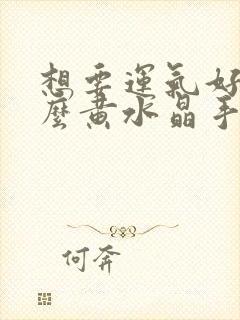 想要運氣好
麼黃水晶手
何奔